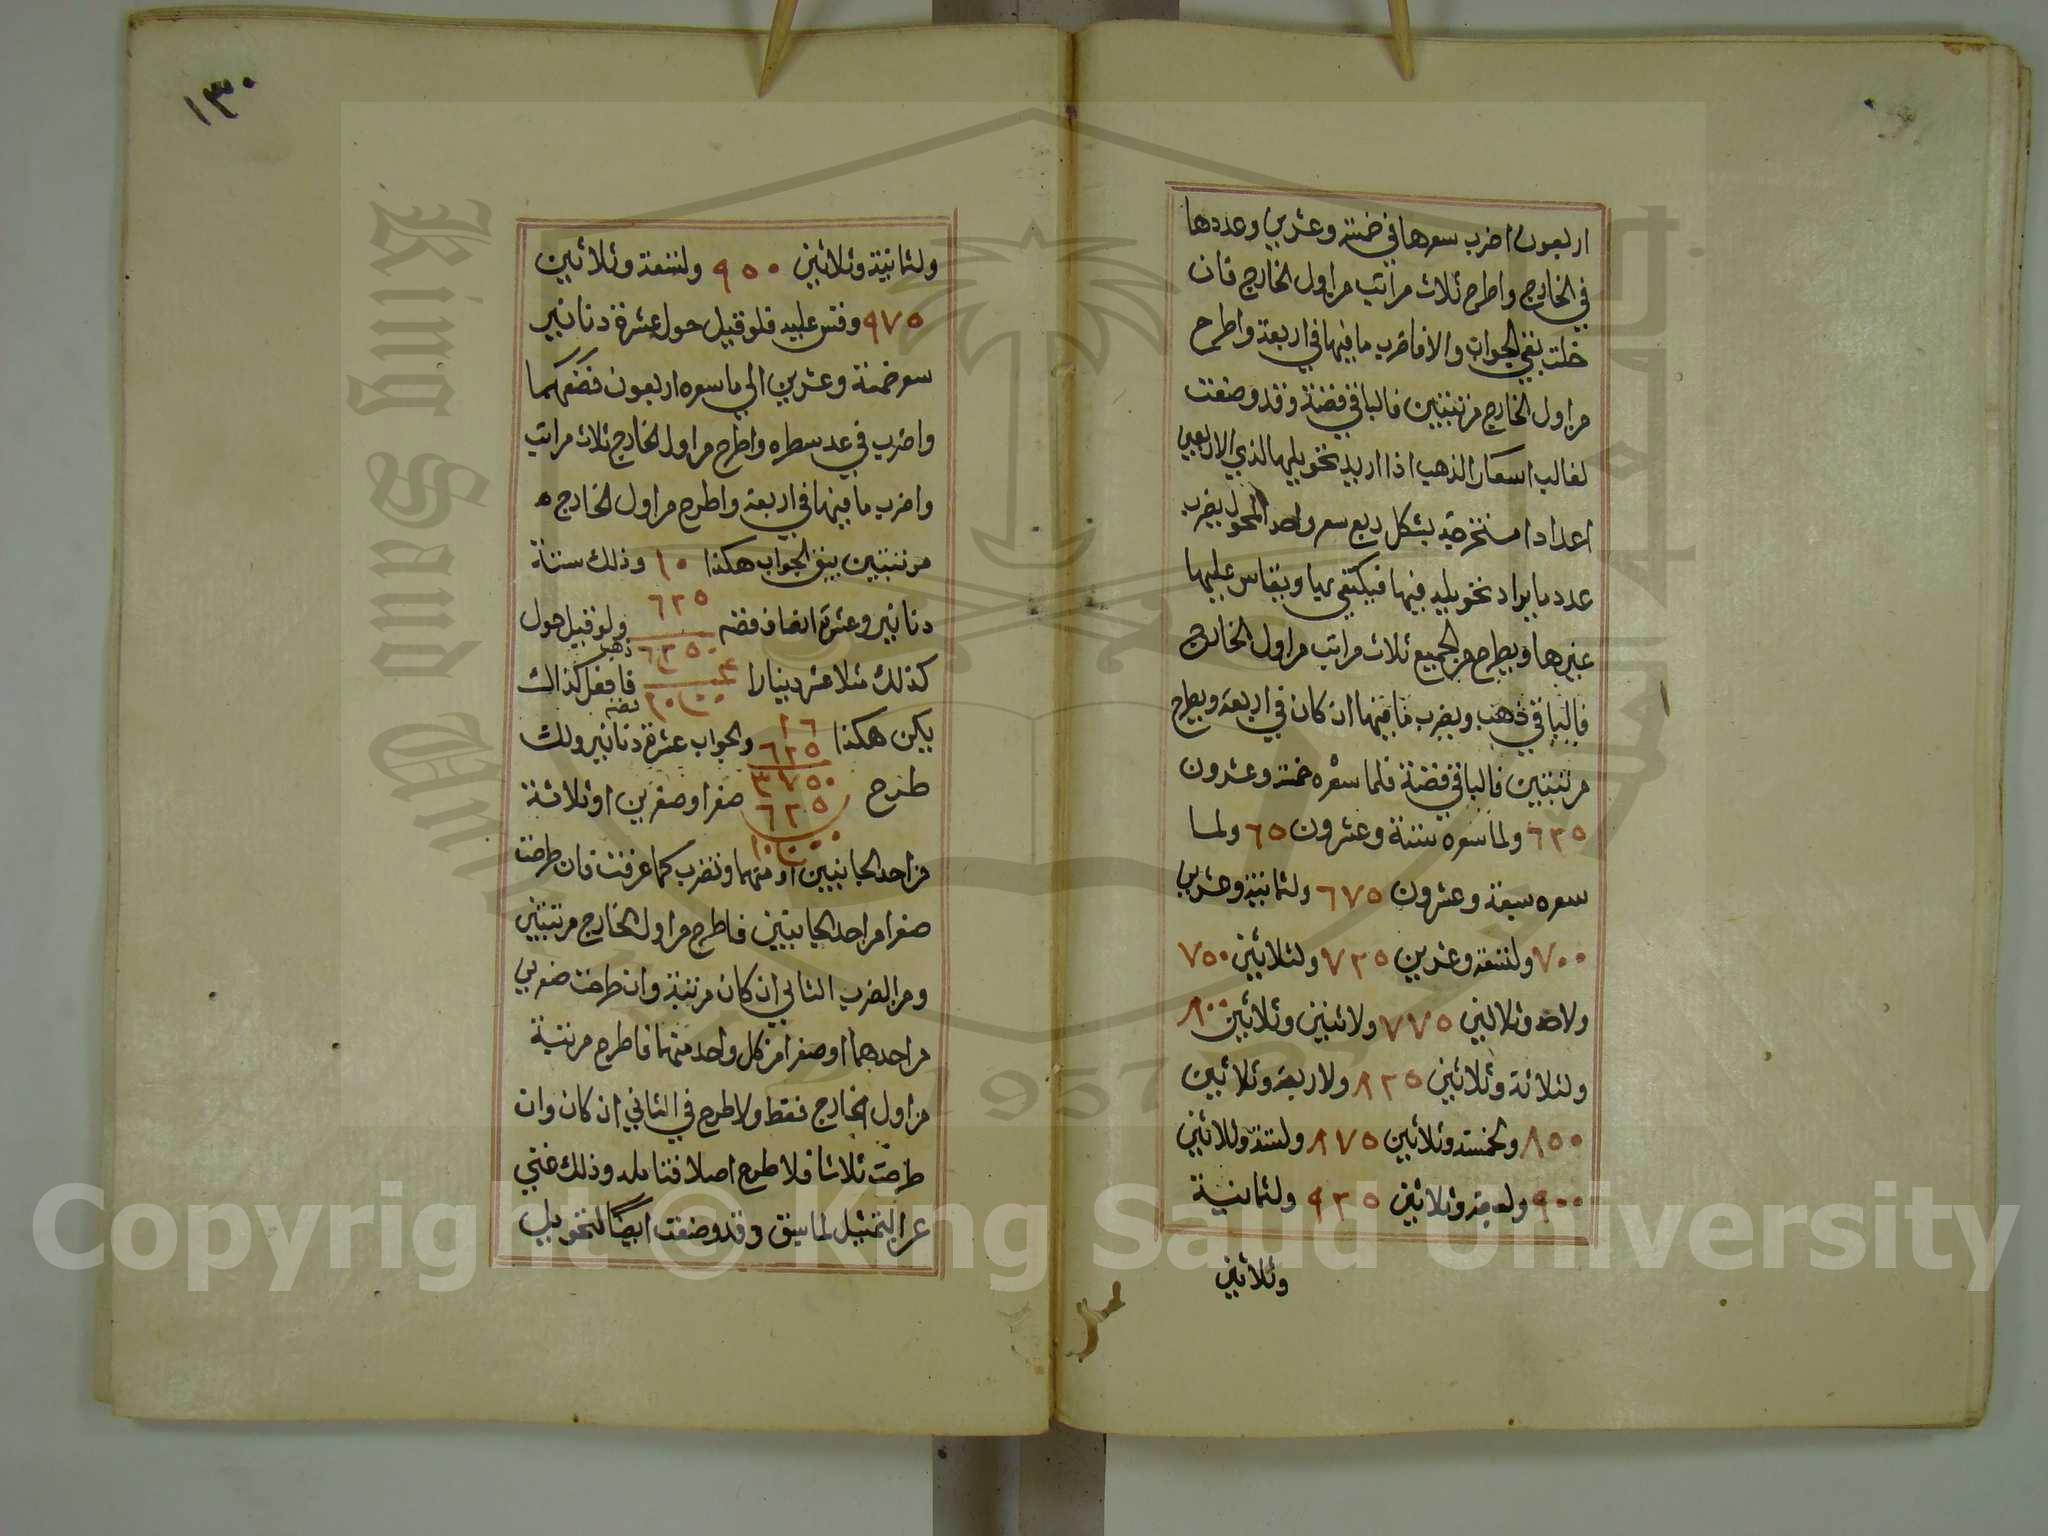 اربعون اضرب سعرها في خمسة وعشرين وعددها
في الخارج واطرح ثلاث مراتب من اول الخارج فان
خلت بقي الجواب والا فاضرب ما فيها في اربعة واطرح
من اول الخارج مرتبتين فالباقي فضة وقد وضعت
لغالب اسعار الذهب اذا اريد تحويلها لذي الاربعين
اعدادا مستخرجة بشكل ربع سعر واحد المحول يضرب
عدد ما يراد تحويله فيها فيكتفى بها ويقاس عليها
غيرها ويطرح من الجميع ثلاث مراتب من اول الخارج
فالباقي ذهب ويضرب ما فيها ان كان في اربعة ويطرح
مرتبتين فالباقي فضة فلما سعره خمسة وعشرون
٦٢٥ ولما سعره ستة وعشرون ٦٥ ولما
سعره سبعة وعشرون ٦٧٥ ولثمانية وعشرين
٧٠٠ ولتسعة وعشرين ٧٢٥ ولثلاثين ٧٥٠
ولاحد وثلاثين ٧٧٥ ولاثنين وثلاثين ٨٠٠
ولثلاثة وثلاثين ٨٢٥ ولاربعة وثلاثين
٨٥٠ ولخمسة وثلاثين ٨٧٥ ولستة وثلاثين
٩٠٠ ولسبعة وثلاثين ٩٢٥ ولثمانية
وثلاثين
١٣٠
ولثمانية وثلاثين ٩٥٠ ولتسعة وثلاثين
٩٧٥ وقس عليه فلو قيل حول عشرة دنانير
سعر خمسة وعشرين الي ما سعره اربعون فضعهما
واضرب في عد سطره واطرح من اول الخارج ثلاث مراتب
واضرب ما فيها في اربعة واطرح من اول الخارج
مرتبتين يبق الجواب هكذا ١٠ وذلك ستة
٦٢٥
دنانير وعشرة انصاف فضه ولو قيل حول
٦٢٥٠ ذهب
كذلك ستة عشر دينارا ٤ فافعل كذالك
١٠٠٠ فضه
يكن هكذا ١٦ والجواب عشرة دنانير ولك
٦٢٥
٣٧٥٠
طرح صفر او صفرين او ثلاثة
٦٢٥
١٠٠٠٠
من احد الجانبين او منهما وتضرب كما عرفت فان طرحت
صفرا من احد الجانبين فاطرح من اول الخارج مرتبتين
ومن الضرب الثاني ان كان مرتبة وان طرحت صفرين
من احدهما او صفرا من كل واحد منهما فاطرح مرتبة
من اول الخارج فقط ولا طرح في الثاني ان كان وان
طرحت ثلاثا فلا طرح اصلا فتامله وذلك غني
عن التمثيل لما سبق وقد وضعت ايضا لتحويل
King Saud University
1957
Copyright © King Saud University